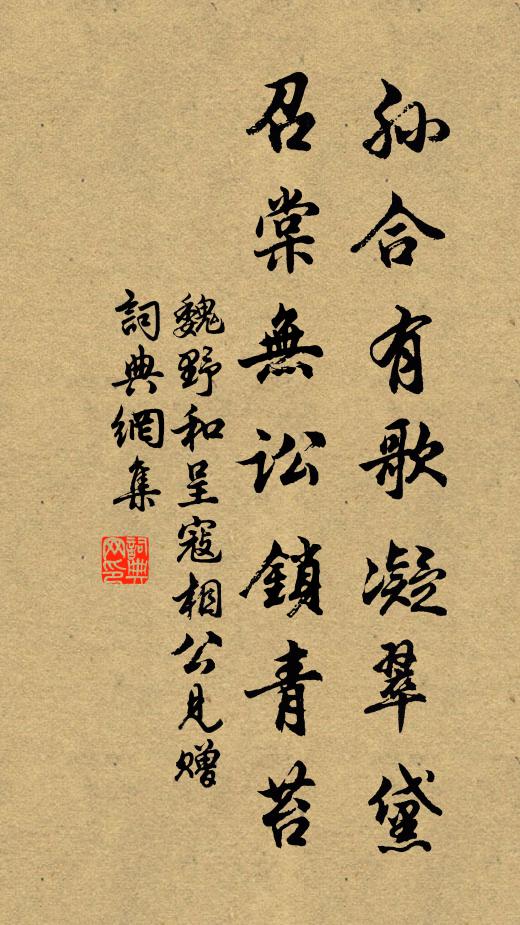 孙合有歌凝翠黛
召棠無訟鎖青苔
魏野和呈寇相公見赠
詞典網集
詞典网印